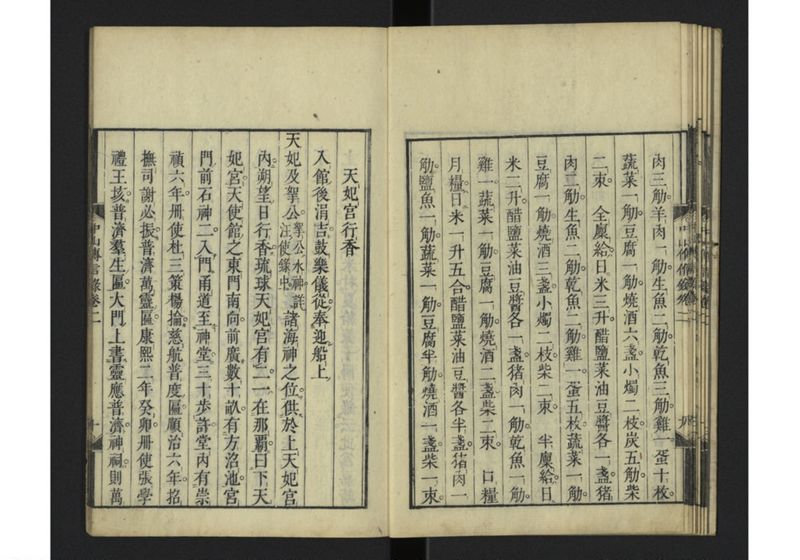 肉三觔羊肉一觔生魚二觔乾魚三觔雞一蛋十枚
蔬菜一觔豆腐一觔燒酒六盞小燭二枝炭五觔柴
二束 全廩給日米三升醋鹽菜油豆醬各一盞猪
肉二觔生魚一觔乾魚二觔雞一蛋五枚蔬菜一觔
豆腐一觔燒酒三盞小燭二枝柴二束 半廩給日
米二升醋鹽菜油豆醬各一盞猪肉一觔乾魚一觔
雞一蔬菜一觔豆腐一觔燒酒二盞柴二束 口糧
月糧日米一升五合醋鹽菜油豆醬各半盞猪肉一
觔鹽魚一觔蔬菜一觔豆腐半觔燒酒一盞柴一束
天妃宮行香
入館後涓吉鼓樂儀從奉迎船上
天妃及拏公拏公水神詳汪使錄中諸海神之位供於上天妃宮
內朔望日行香琉球天妃宮有二一在那霸曰下天
妃宮天使館之東門南向前廣數十畝有方沼池宮
門前石神二入門甬道至神堂三十步許堂內有崇
禎六年册使杜三策楊掄慈航普度匾順治六年招
撫司謝必振普濟萬靈匾康熙二年癸卯册使張學
禮王垓普濟羣生匾大門上書靈應普濟神祠則萬
中山傳信錄卷二